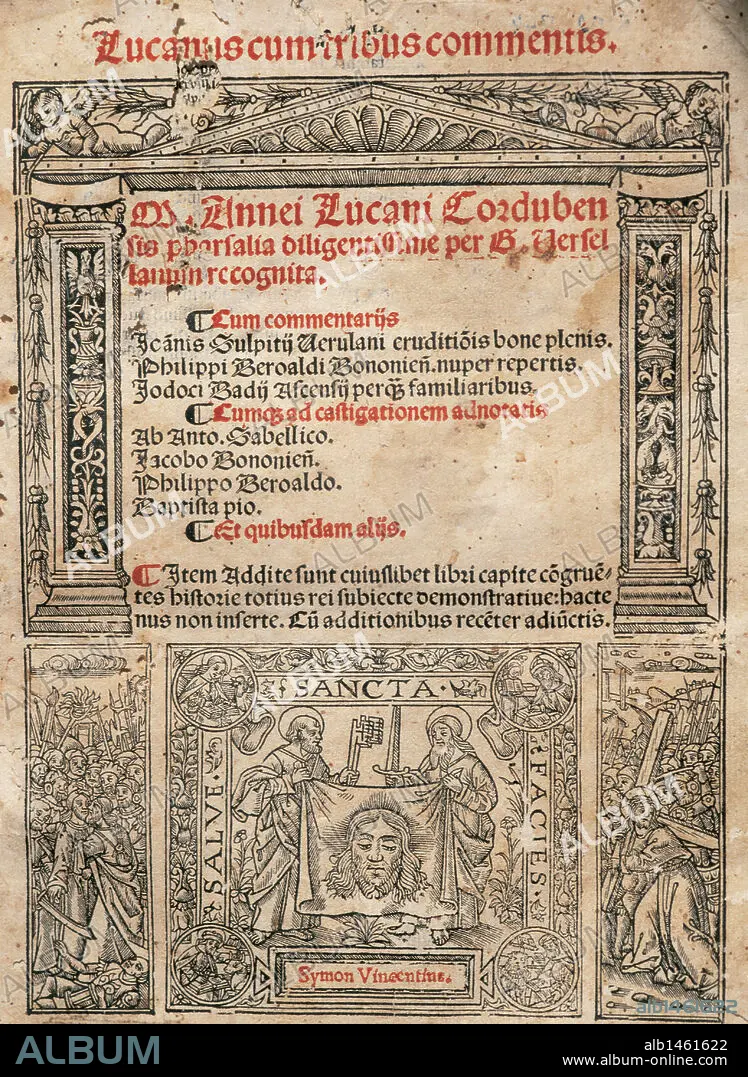 Lucanus cum tribus commentis.
M. Annei Lucani Corduben
sis pharsalia diligentissime per G. Versel
lanum recognita.
Cum commentarijs
Joãnis Sulpitij Verulani eruditiõis bone plenis.
Philippi Beroaldi Bononieñ. nuper repertis.
Jodoci Badij Ascensij perq̃ familiaribus
Cumq; ad castigationem adnotatis
Ab Anto. Sabellico.
Jacobo Bononieñ.
Philippo Beroaldo.
Baptista pio.
Et quibusdam alijs.
Item Addite sunt cuiuslibet libri capite cõgruẽ-
tes historie totius rei subiecte demonstratiue: hacte
nus non inserte. Cũ additionibus recẽter adiũctis.
SANCTA
SALVE
FACIES
Symon Vincentius.
alb1461622
ALBUM
alb1461622
www.album-online.com